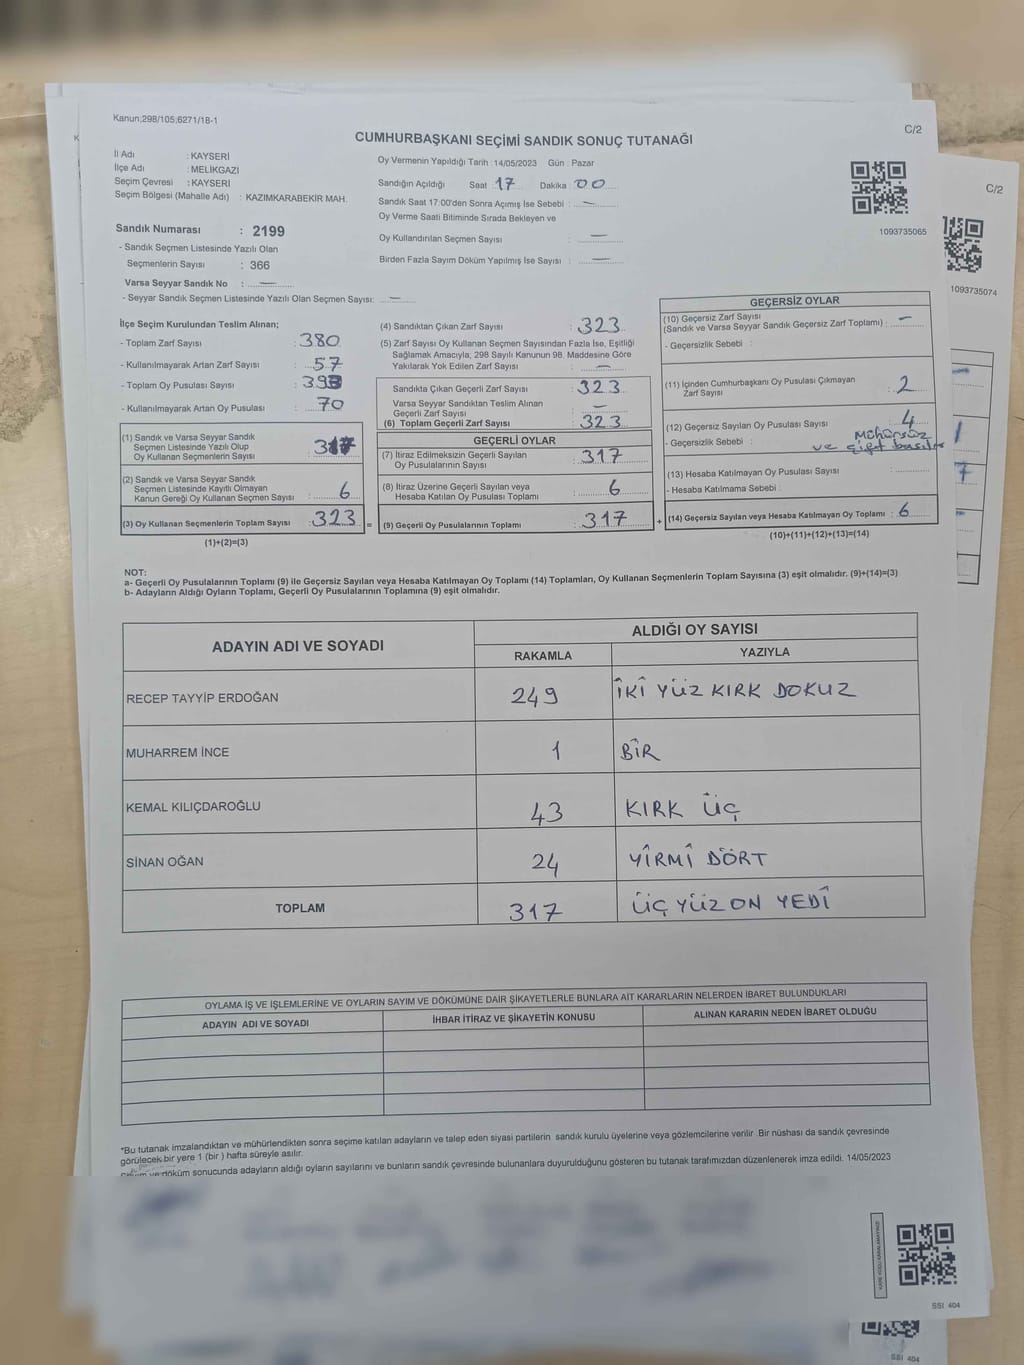 Kanun;298/105;6271/18-1
C/2
CUMHURBAŞKANI SEÇİMİ SANDIK SONUÇ TUTANAĞI
İl Adı : KAYSERİ
İlçe Adı : MELİKGAZİ
Seçim Çevresi : KAYSERİ
Seçim Bölgesi (Mahalle Adı) : KAZIMKARABEKİR MAH.
Oy Vermenin Yapıldığı Tarih : 14/05/2023 Gün : Pazar
Sandığın Açıldığı Saat : 17 Dakika : 00
Sandık Saat 17:00'den Sonra Açımış İse Sebebi : —
Oy Verme Saati Bitiminde Sırada Bekleyen ve
Oy Kullandırılan Seçmen Sayısı : —
Birden Fazla Sayım Döküm Yapılmış İse Sayısı : —
1093735065
Sandık Numarası : 2199
- Sandık Seçmen Listesinde Yazılı Olan
Seçmenlerin Sayısı : 366
Varsa Seyyar Sandık No : —
- Seyyar Sandık Seçmen Listesinde Yazılı Olan Seçmen Sayısı: —
İlçe Seçim Kurulundan Teslim Alınan;
- Toplam Zarf Sayısı : 380
- Kullanılmayarak Artan Zarf Sayısı : 57
- Toplam Oy Pusulası Sayısı :
- Kullanılmayarak Artan Oy Pusulası : 70
(1) Sandık ve Varsa Seyyar Sandık
Seçmen Listesinde Yazılı Olup
Oy Kullanan Seçmenlerin Sayısı : 317
(2) Sandık ve Varsa Seyyar Sandık
Seçmen Listesinde Kayıtlı Olmayan
Kanun Gereği Oy Kullanan Seçmen Sayısı : 6
(3) Oy Kullanan Seçmenlerin Toplam Sayısı : 323 =
(1)+(2)=(3)
(4) Sandıktan Çıkan Zarf Sayısı : 323
(5) Zarf Sayısı Oy Kullanan Seçmen Sayısından Fazla İse, Eşitliği
Sağlamak Amacıyla, 298 Sayılı Kanunun 98. Maddesine Göre
Yakılarak Yok Edilen Zarf Sayısı : —
Sandıkta Çıkan Geçerli Zarf Sayısı : 323
Varsa Seyyar Sandıktan Teslim Alınan
Geçerli Zarf Sayısı : —
(6) Toplam Geçerli Zarf Sayısı : 323
GEÇERLİ OYLAR
(7) İtiraz Edilmeksizin Geçerli Sayılan
Oy Pusulalarının Sayısı : 317
(8) İtiraz Üzerine Geçerli Sayılan veya
Hesaba Katılan Oy Pusulası Toplamı : 6
(9) Geçerli Oy Pusulalarının Toplamı : 317 +
GEÇERSİZ OYLAR
(10) Geçersiz Zarf Sayısı
(Sandık ve Varsa Seyyar Sandık Geçersiz Zarf Toplamı) : —
- Geçersizlik Sebebi :
(11) İçinden Cumhurbaşkanı Oy Pusulası Çıkmayan
Zarf Sayısı : 2
(12) Geçersiz Sayılan Oy Pusulası Sayısı : 4
- Geçersizlik Sebebi : Mühürsüz
ve çift
(13) Hesaba Katılmayan Oy Pusulası Sayısı :
- Hesaba Katılmama Sebebi :
(14) Geçersiz Sayılan veya Hesaba Katılmayan Oy Toplamı : 6
(10)+(11)+(12)+(13)=(14)
NOT:
a- Geçerli Oy Pusulalarının Toplamı (9) ile Geçersiz Sayılan veya Hesaba Katılmayan Oy Toplamı (14) Toplamları, Oy Kullanan Seçmenlerin Toplam Sayısına (3) eşit olmalıdır. (9)+(14)=(3)
b- Adayların Aldığı Oyların Toplamı, Geçerli Oy Pusulalarının Toplamına (9) eşit olmalıdır.
ADAYIN ADI VE SOYADI
ALDIĞI OY SAYISI
RAKAMLA YAZIYLA
RECEP TAYYİP ERDOĞAN 249 İKİ YÜZ KIRK DOKUZ
MUHARREM İNCE 1 BİR
KEMAL KILIÇDAROĞLU 43 KIRK ÜÇ
SİNAN OĞAN 24 YİRMİ DÖRT
TOPLAM 317 ÜÇ YÜZ ON YEDİ
OYLAMA İŞ VE İŞLEMLERİNE VE OYLARIN SAYIM VE DÖKÜMÜNE DAİR ŞİKAYETLERLE BUNLARA AİT KARARLARIN NELERDEN İBARET BULUNDUKLARI
ADAYIN ADI VE SOYADI İHBAR İTİRAZ VE ŞİKAYETİN KONUSU ALINAN KARARIN NEDEN İBARET OLDUĞU
*Bu tutanak imzalandıktan ve mühürlendikten sonra seçime katılan adayların ve talep eden siyasi partilerin sandık kurulu üyelerine veya gözlemcilerine verilir .Bir nüshası da sandık çevresinde
görülecek bir yere 1 (bir ) hafta süreyle asılır.
ve döküm sonucunda adayların aldığı oyların sayılarını ve bunların sandık çevresinde bulunanlara duyurulduğunu gösteren bu tutanak tarafımızdan düzenlenerek imza edildi. 14/05/2023
SSI 404
C/2
1093735074
1
7
SSI 404